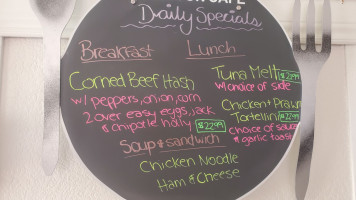 CAFE
Daily Specials
Breakfast
Corned Beef Hash
w/ peppers, onion, corn
2 over easy eggs, jack
& chipotle holly $22.99
Lunch
Tuna Melt $22.99
w/ choice of side
Chicken & Prawn
Tortellini $22.99
choice of salad
& garlic toast
Soup & sandwich
Chicken Noodle
Ham & Cheese